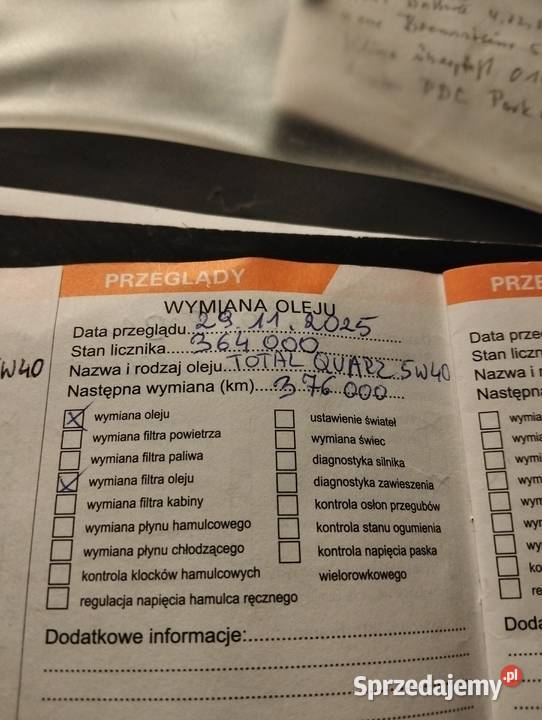 4.12.2
5
01
PDC Park
PRZEGLĄDY
WYMIANA OLEJU
Data przeglądu 29.11.2025
Stan licznika 364.000
Nazwa i rodzaj oleju TOTAL QUARZ 5W40
Następna wymiana (km) 376 000
wymiana oleju
wymiana filtra powietrza
wymiana filtra paliwa
wymiana filtra oleju
wymiana filtra kabiny
wymiana płynu hamulcowego
wymiana płynu chłodzącego
kontrola klocków hamulcowych
regulacja napięcia hamulca ręcznego
ustawienie świateł
wymiana świec
diagnostyka silnika
diagnostyka zawieszenia
kontrola osłon przegubów
kontrola stanu ogumienia
kontrola napięcia paska
wielorowkowego
Dodatkowe informacje:
W40
PRZE
Data prze
Stan liczn
Nazwa i r
Następn
wymia
wym
wymi
wym
wym
wyr
wy
ko
re
Doda
Sprzedajemy.pl